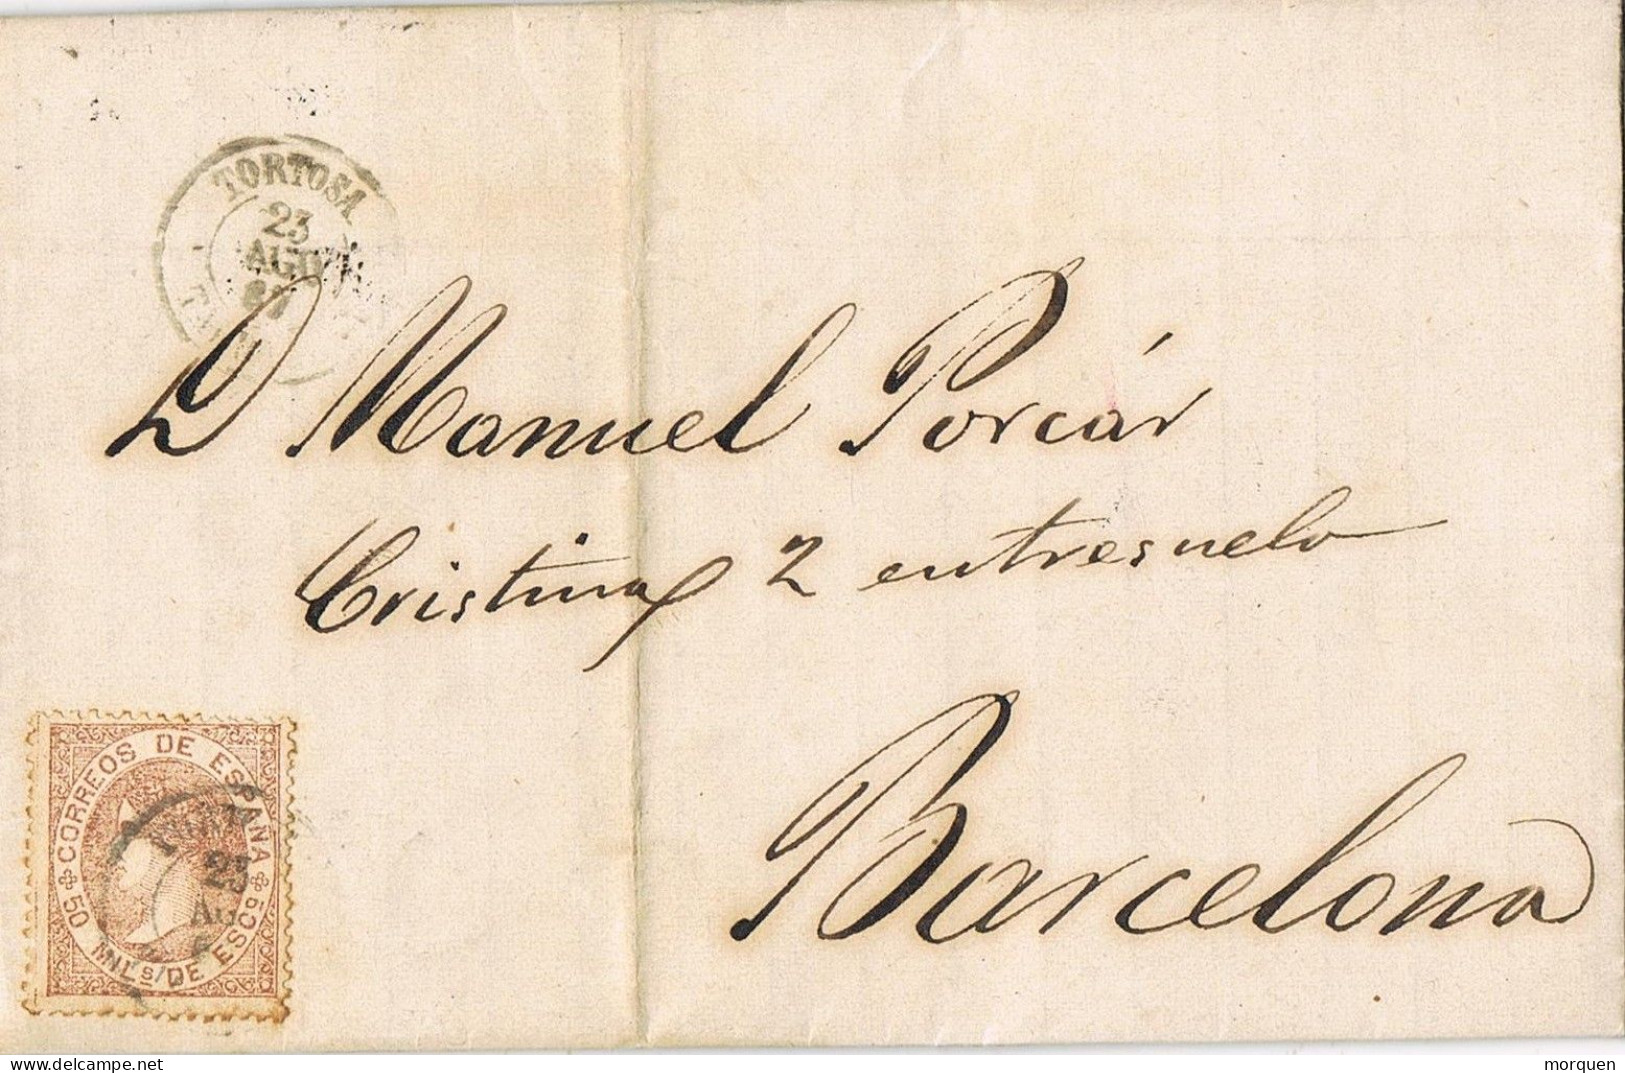 TORTOSA
23
AGO
67
D Manuel Porcár
Cristina 2 entresuelo
Barcelona
CORREOS DE ESPAÑA
50 MILs DE ESCO
23
AG
morquen